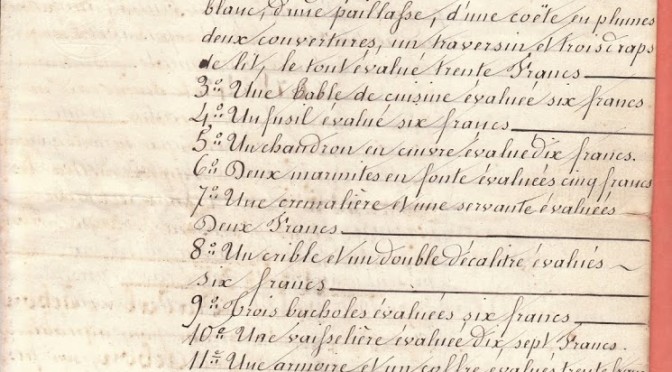 blanc, d'une paillasse, d'une coëte en plumes
deux couvertures, un traversin et trois draps
de lit, le tout évalué trente Francs
3° Une table de cuisine évaluée six francs
4° Un fusil évalué six francs
5° Un chandron en cuivre évalué dix francs.
6° Deux marmites en fonte évaluées cinq francs
7° Une cremalière et une servante évaluées
Deux Francs
8° Un crible et un double décalitre évalués
six francs
9° Trois bacholes évaluées six francs
10° Une vaisselière évaluée dix sept Francs.
11° Une armoire et un coffre évalués trente